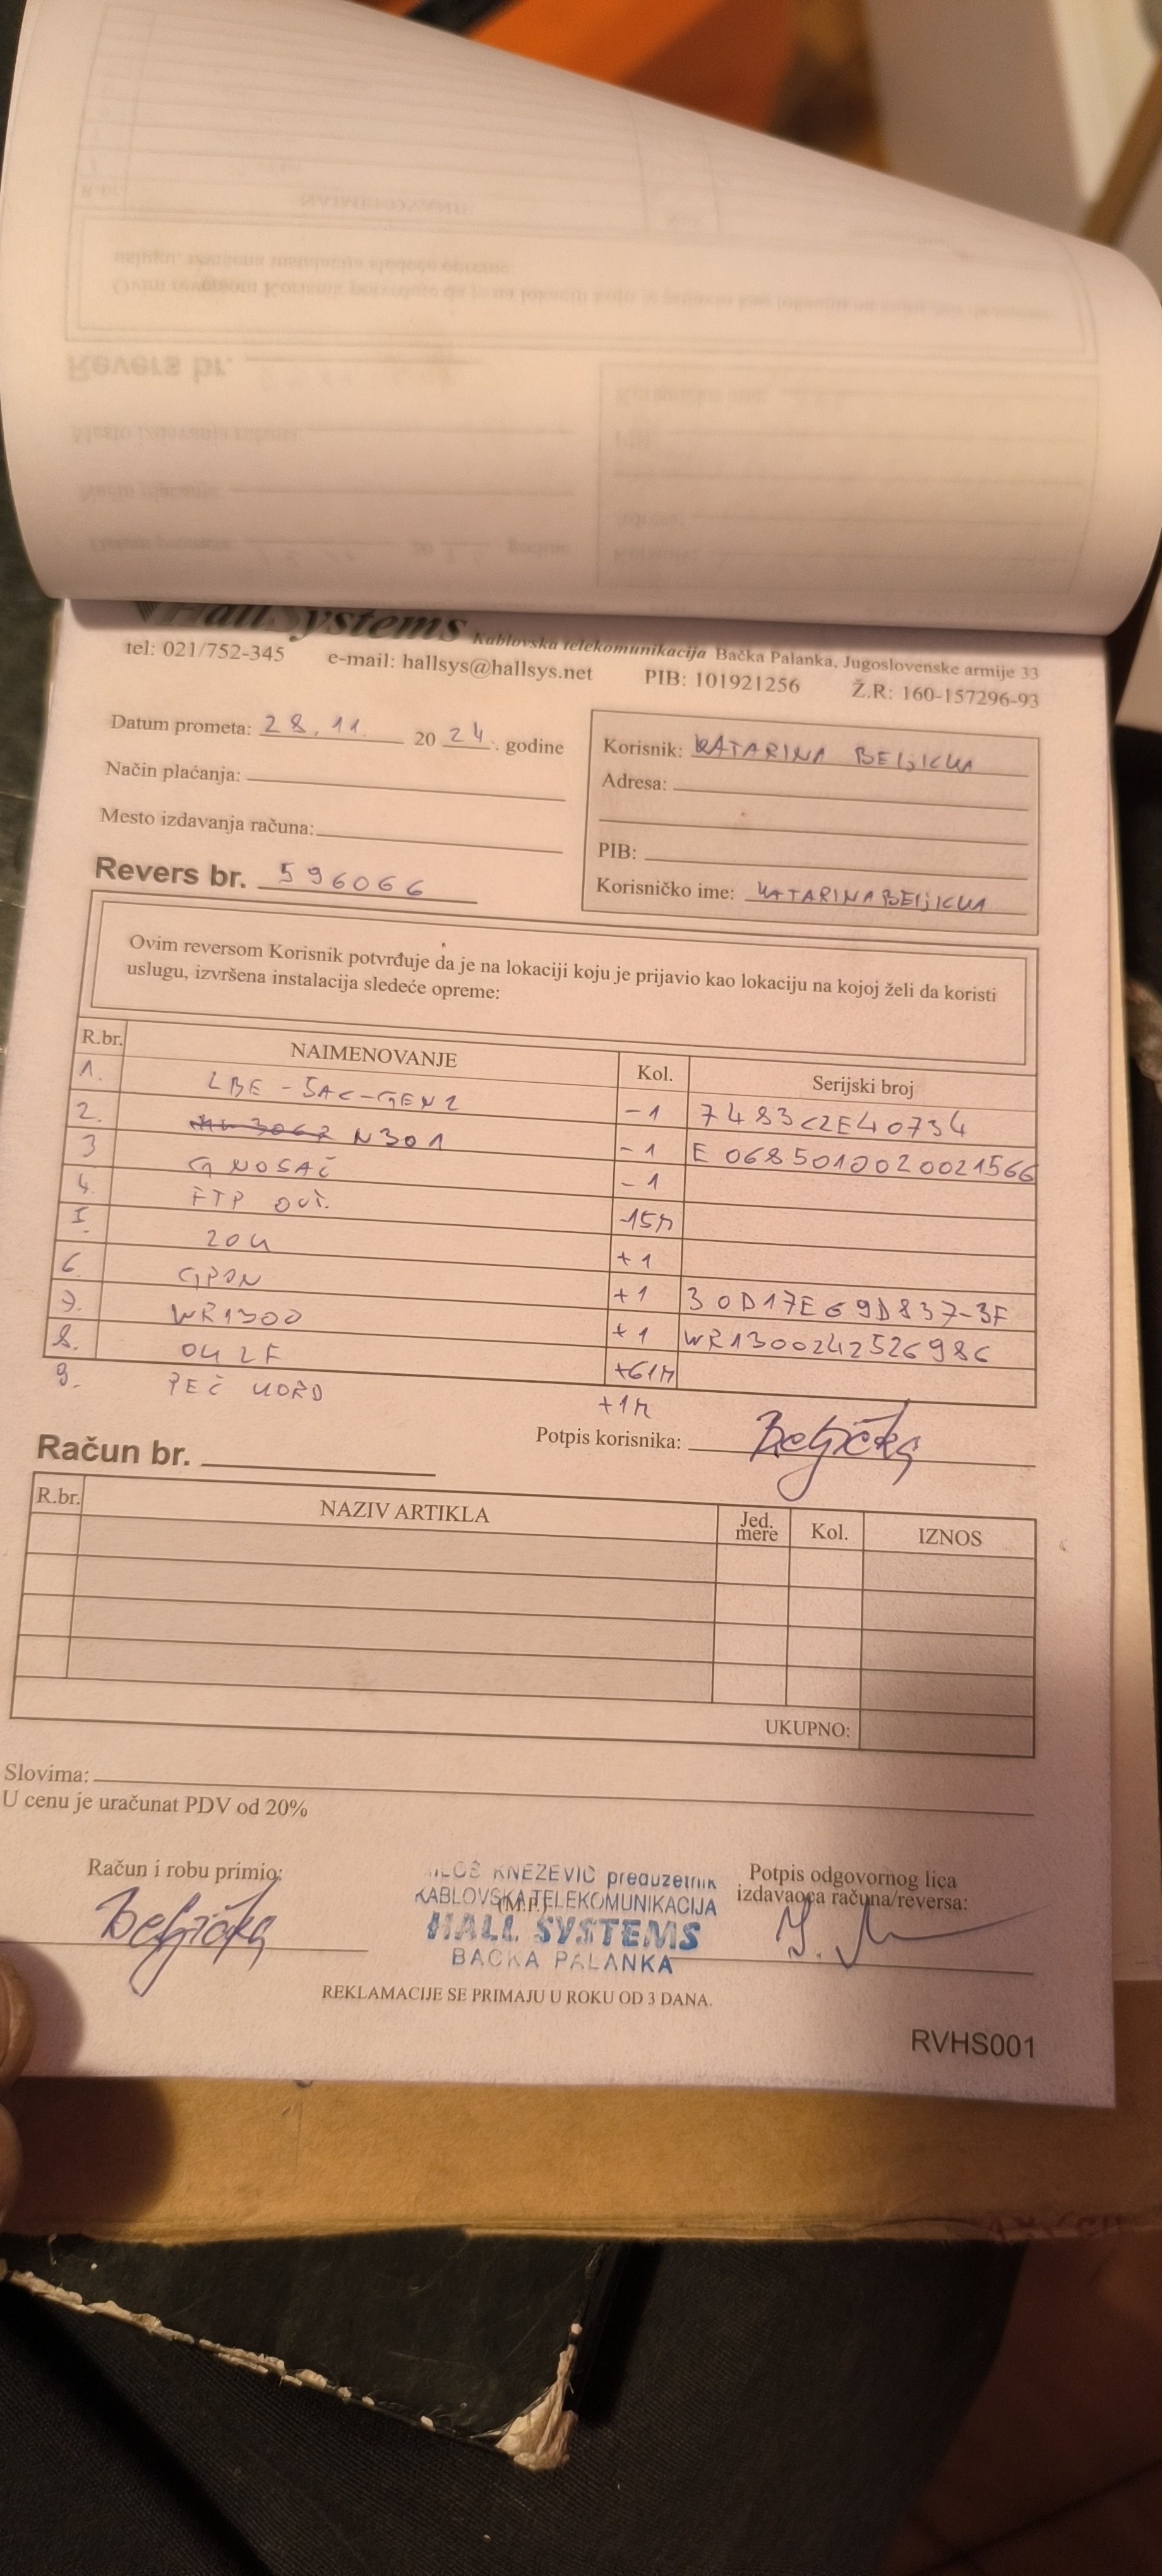 HallSystems Kablovska telekomunikacija Bačka Palanka, Jugoslovenske armije 33
tel: 021/752-345 e-mail: hallsys@hallsys.net PIB: 101921256 Ž.R: 160-157296-93
Datum prometa: 28.11. 2024. godine
Način plaćanja:
Mesto izdavanja računa:
Revers br. 596066
Korisnik: KATARINA BELJICKA
Adresa:
PIB:
Korisničko ime: KATARINABELJICKA
Ovim reversom Korisnik potvrđuje da je na lokaciji koju je prijavio kao lokaciju na kojoj želi da koristi
uslugu, izvršena instalacija sledeće opreme:
R.br. NAIMENOVANJE Kol. Serijski broj
1. LBE-5AC-GEN2 -1 7483C2E40734
2. N301 -1 E0685010020021566
3 G NOSAČ -1
4. FTP OUT. -15M
5. ZOK +1
6. GPON +1 30D17E69D837-3F
7. WR1300 +1 WR1300242526986
8. OK 2F +61M
9. PEČ KORD +1M
Potpis korisnika: Beljička
Račun br.
R.br. NAZIV ARTIKLA Jed. mere Kol. IZNOS
UKUPNO:
Slovima:
U cenu je uračunat PDV od 20%
Račun i robu primio:
Beljička
MILOŠ KNEŽEVIĆ preduzetnik
KABLOVSKA TELEKOMUNIKACIJA
(M.P.)
HALL SYSTEMS
BAČKA PALANKA
Potpis odgovornog lica
izdavaoca računa/reversa:
REKLAMACIJE SE PRIMAJU U ROKU OD 3 DANA.
RVHS001